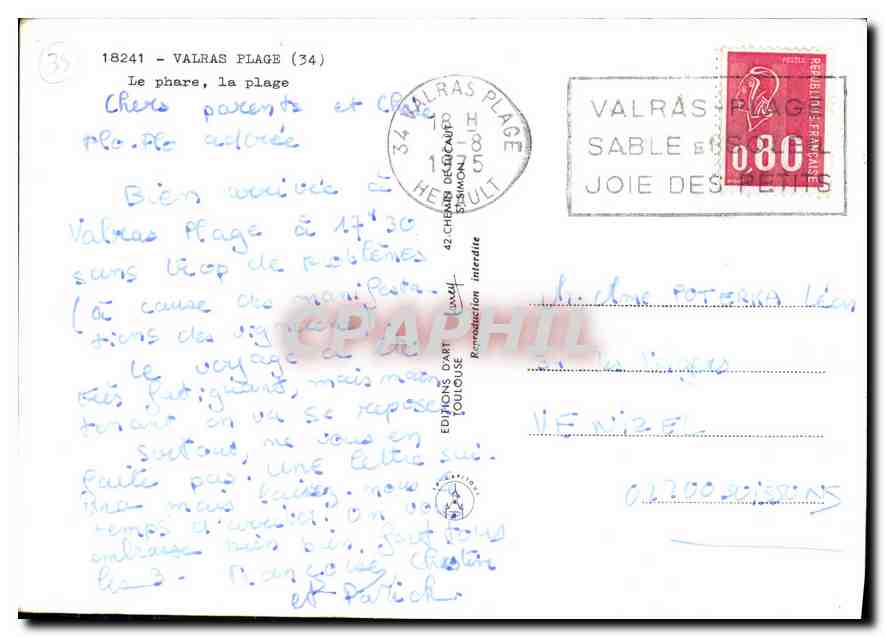 35
18241 - VALRAS PLAGE (34)
Le phare, la plage
Chers parents et
adorée
Bien arrivée à
Valras Plage à 17H30
sans trop de problèmes
(à cause des manifesta-
tions des vignerons)
Le voyage a été
très fatigant, mais main-
tenant on va se reposer.
Surtout, ne vous en
faite pas. Une lettre sui-
vra mais laissez-nous le
temps d'arriver. On vous
embrasse bien bien fort tous
les 3. Françoise, Christine
et Patrick.
34 VALRAS PLAGE
H
-8
1975
HERAULT
VALRAS-PLAGE
SABLE et SOLEIL
JOIE DES PETITS
POSTES
REPUBLIQUE FRANÇAISE
0,80
EDITIONS D'ART Larrey 42, CHEMIN DE DUCAUT
TOULOUSE ST-SIMON
Reproduction interdite
CPAPHIL
M. Mme POTERKA Léon
VENIZEL
02200 SOISSONS